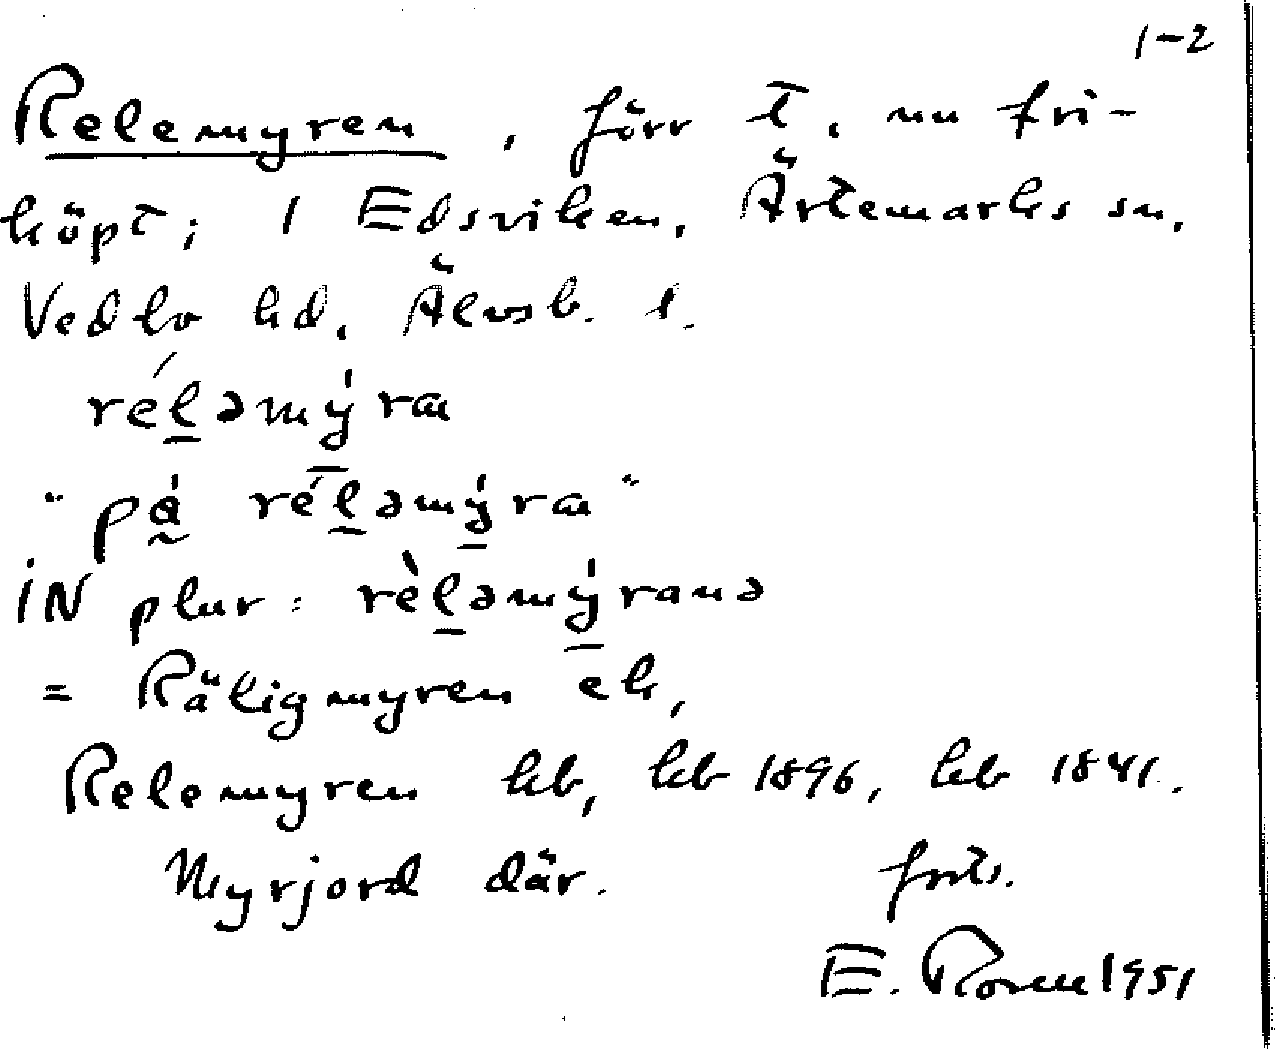 1-2
Relemyren, förr t. nu fri-
köpt; 1 Edsviken, Ärtemarks sn.
Vedbo hd. Älvsb. l.
rélǝmýra
"på rélǝmýra"
IN plur: rèlǝmýranǝ
= Räligmyren ek,
Relemyren kb, kb 1896, kb 1841.
Myrjord där. forts.
E. Rosell 1951